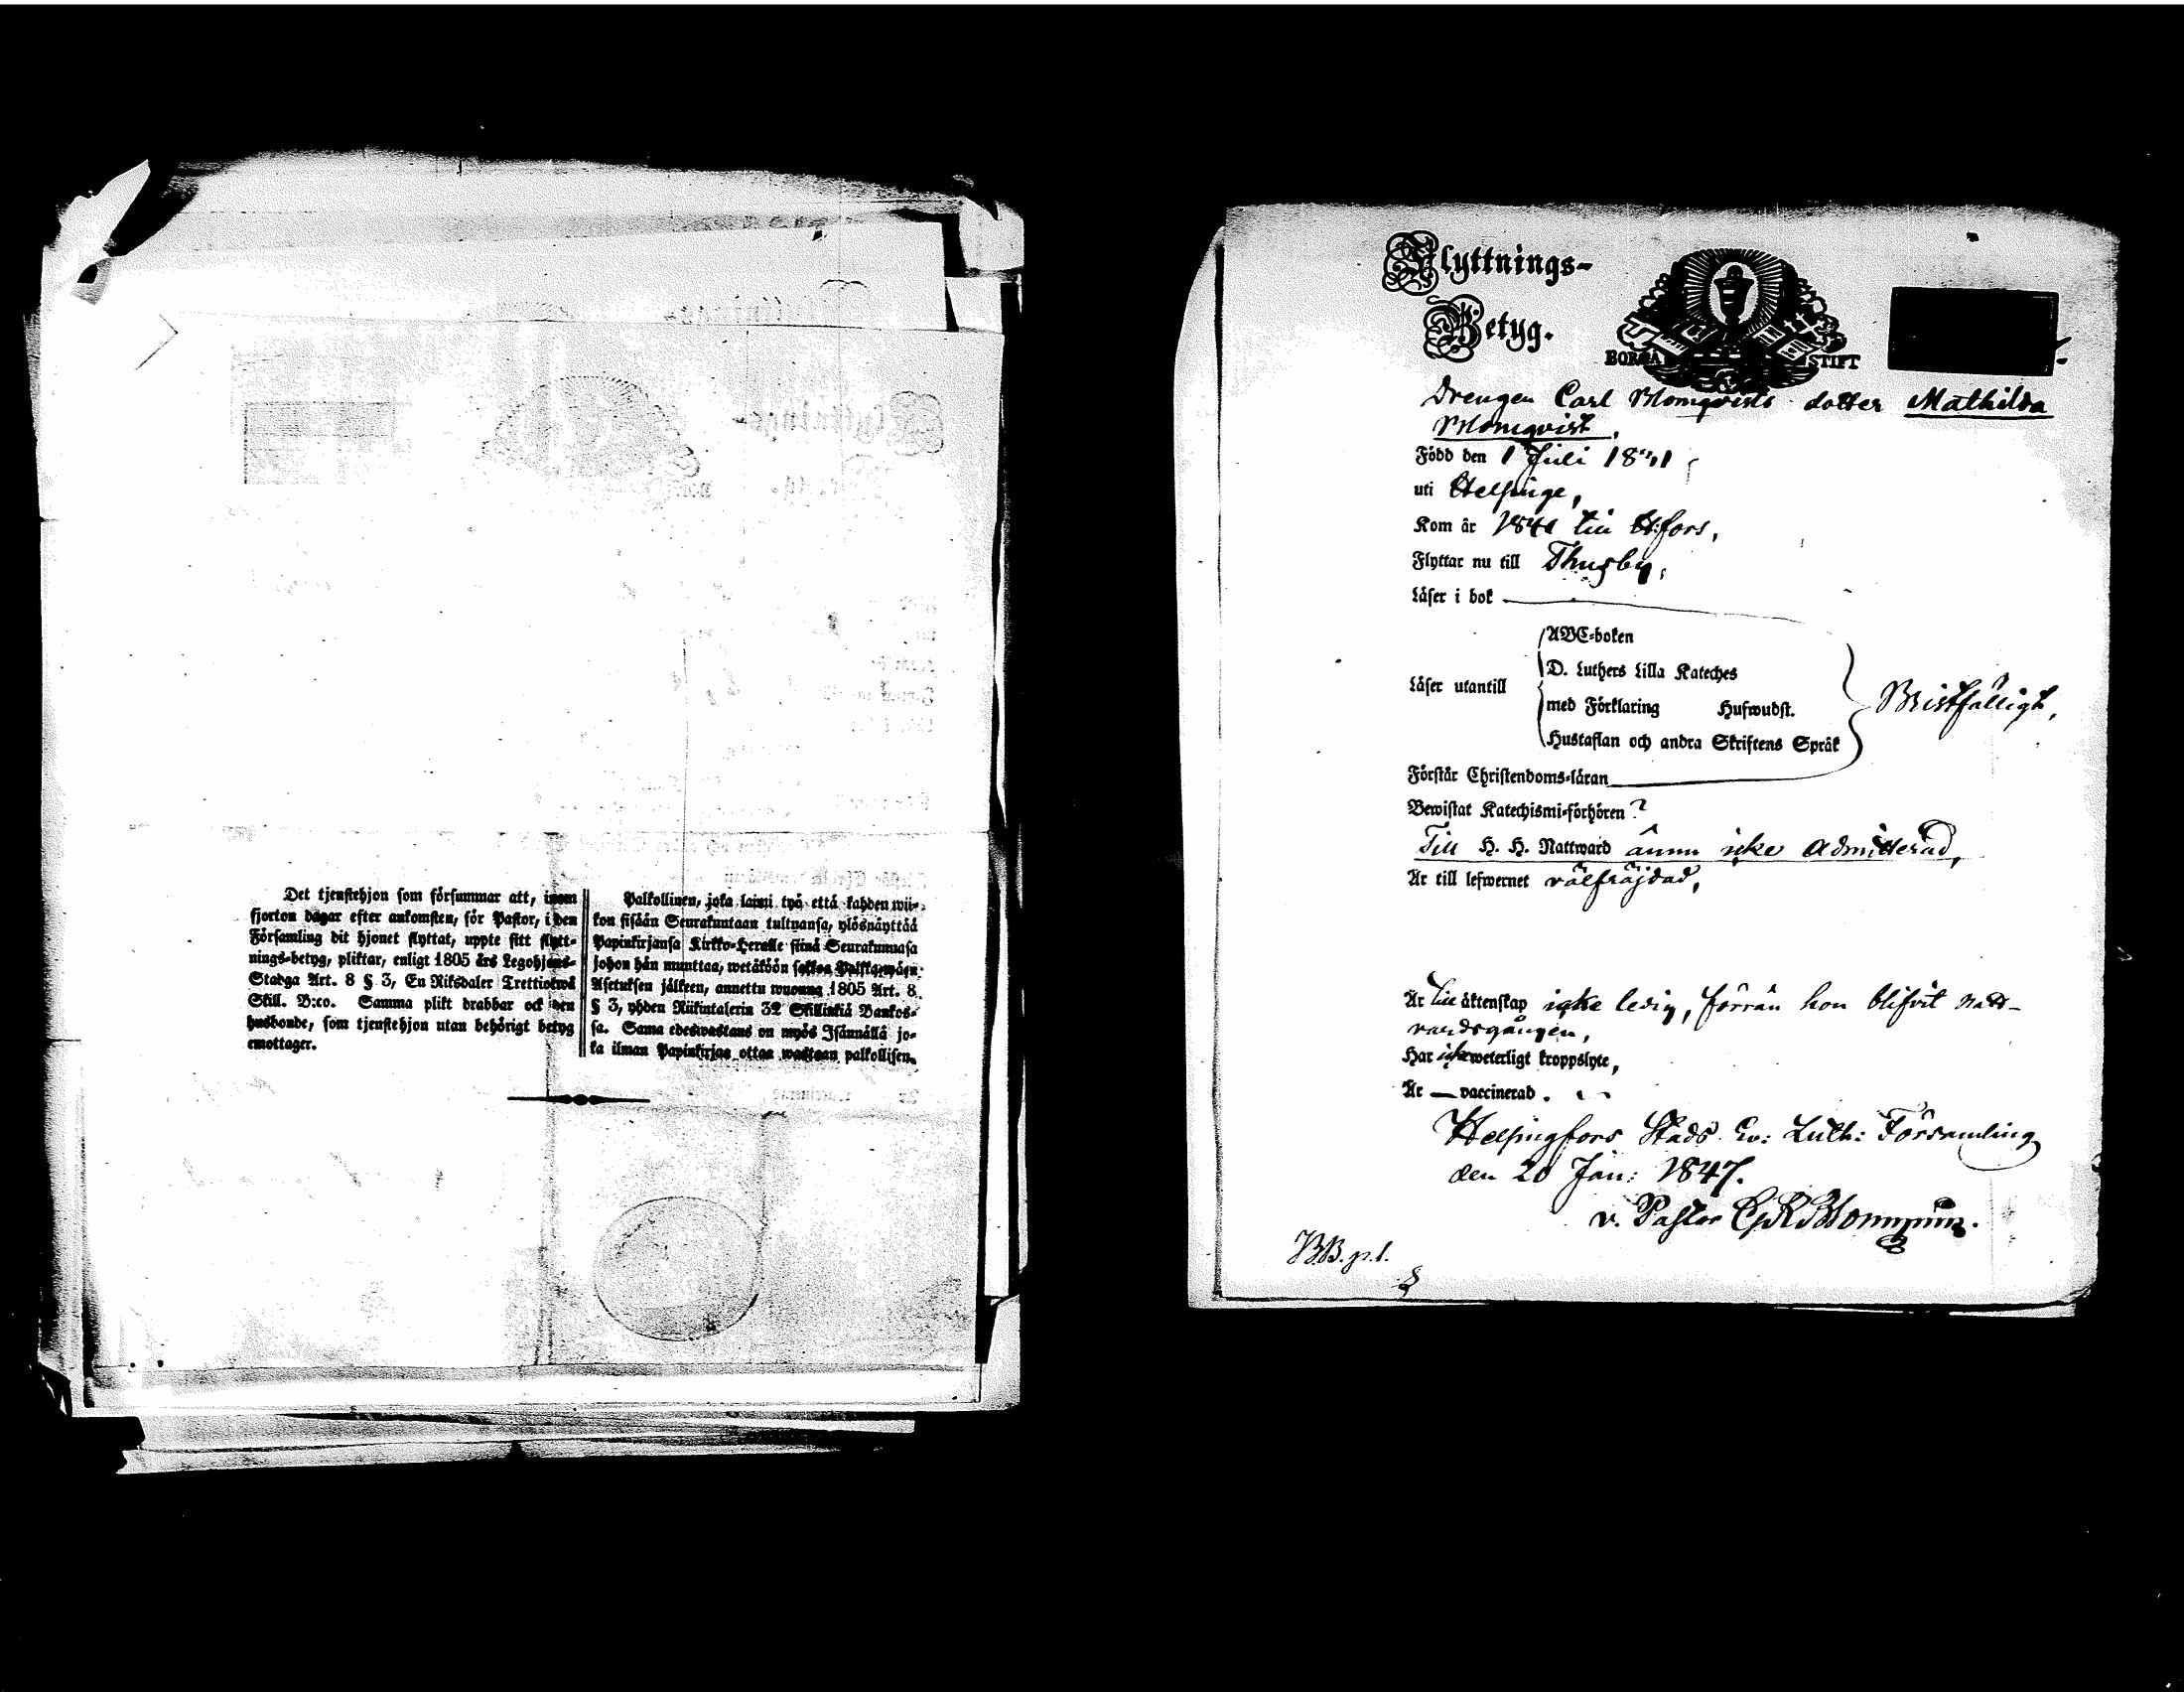 Det tjenstehjon som försummar att, inom
fjorton dagar efter ankomsten, för Pastor, i den
Församling dit hjonet flyttat, uppte sitt flytt-
nings-betyg, pliktar, enligt 1805 års Legohjons-
Stadga Art. 8 § 3, En Riksdaler Trettiotwå
Skill. B:co. Samma plikt drabbar ock den
husbonde, som tjenstehjon utan behörigt betyg
emottager.
Palkollinen, joka laimi lyö että kahden wii-
kon sisään Seurakuntaan tultuansa, ylösnäyttää
Papinkirjansa Kirkko-Herralle siinä Seurakunnasa
johon hän muuttaa, wetäköön sakkoa Palkkawäen
Asetuksen jälkeen, annettu wuonna 1805 Art. 8
§ 3, yhden Riikintalerin 32 Skillinkiä Bankos-
sa. Sama edeswastaus on myös Isännällä jo-
ka ilman Papinkirjaa ottaa wastaan palkollisen.
Flyttnings-
Betyg.
BORGÅ STIFT
Drengen Carl Blomqvists dotter Mathilda
Blomqvist.
Född den 1 Juli 1841
uti Helsinge,
Kom år 1841 till H:fors,
Flyttar nu till Thusby,
Läser i bok
Läser utantill
ABC-boken
D. Luthers Lilla Kateches
med Förklaring Hufwudst.
Hustaflan och andra Skriftens Språk
Bristfälligt,
Förstår Christendoms-läran
Bewistat Katechismi-förhören ?
Till H. H. Nattward ännu icke admitterad,
Är till lefwernet välfräjdad,
Är till äktenskap icke ledig, förrän hon blifvit natt-
vardsgången,
Har icke weterligt kroppslyte,
Är — vaccinerad.
Helsingfors Stads Ev: Luth: Församling
den 20 Jan: 1847.
v. Pastor
BB. p. 1.